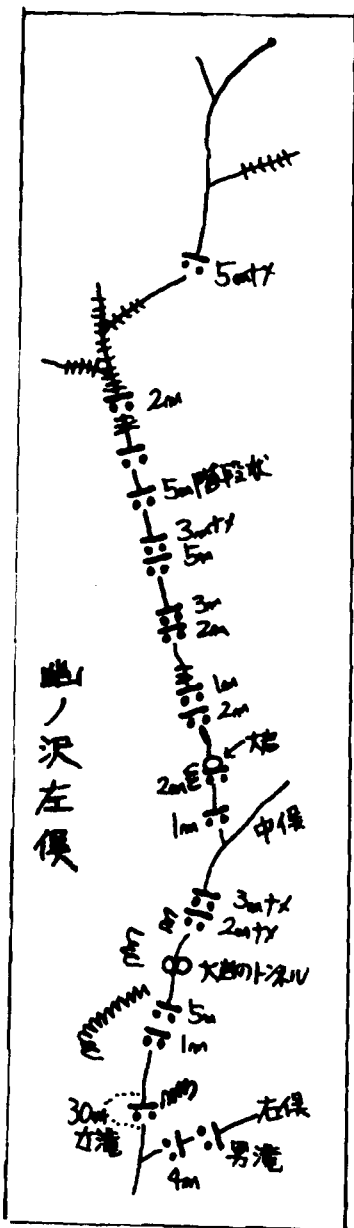 5mナメ
2m
5m階段状
3mナメ
5m
3m
2m
1m
2m
大岩
2m
1m
中俣
3mナメ
2mナメ
大岩のトンネル
5m
1m
30m
女滝
右俣
男滝
4m
幽ノ沢左俣